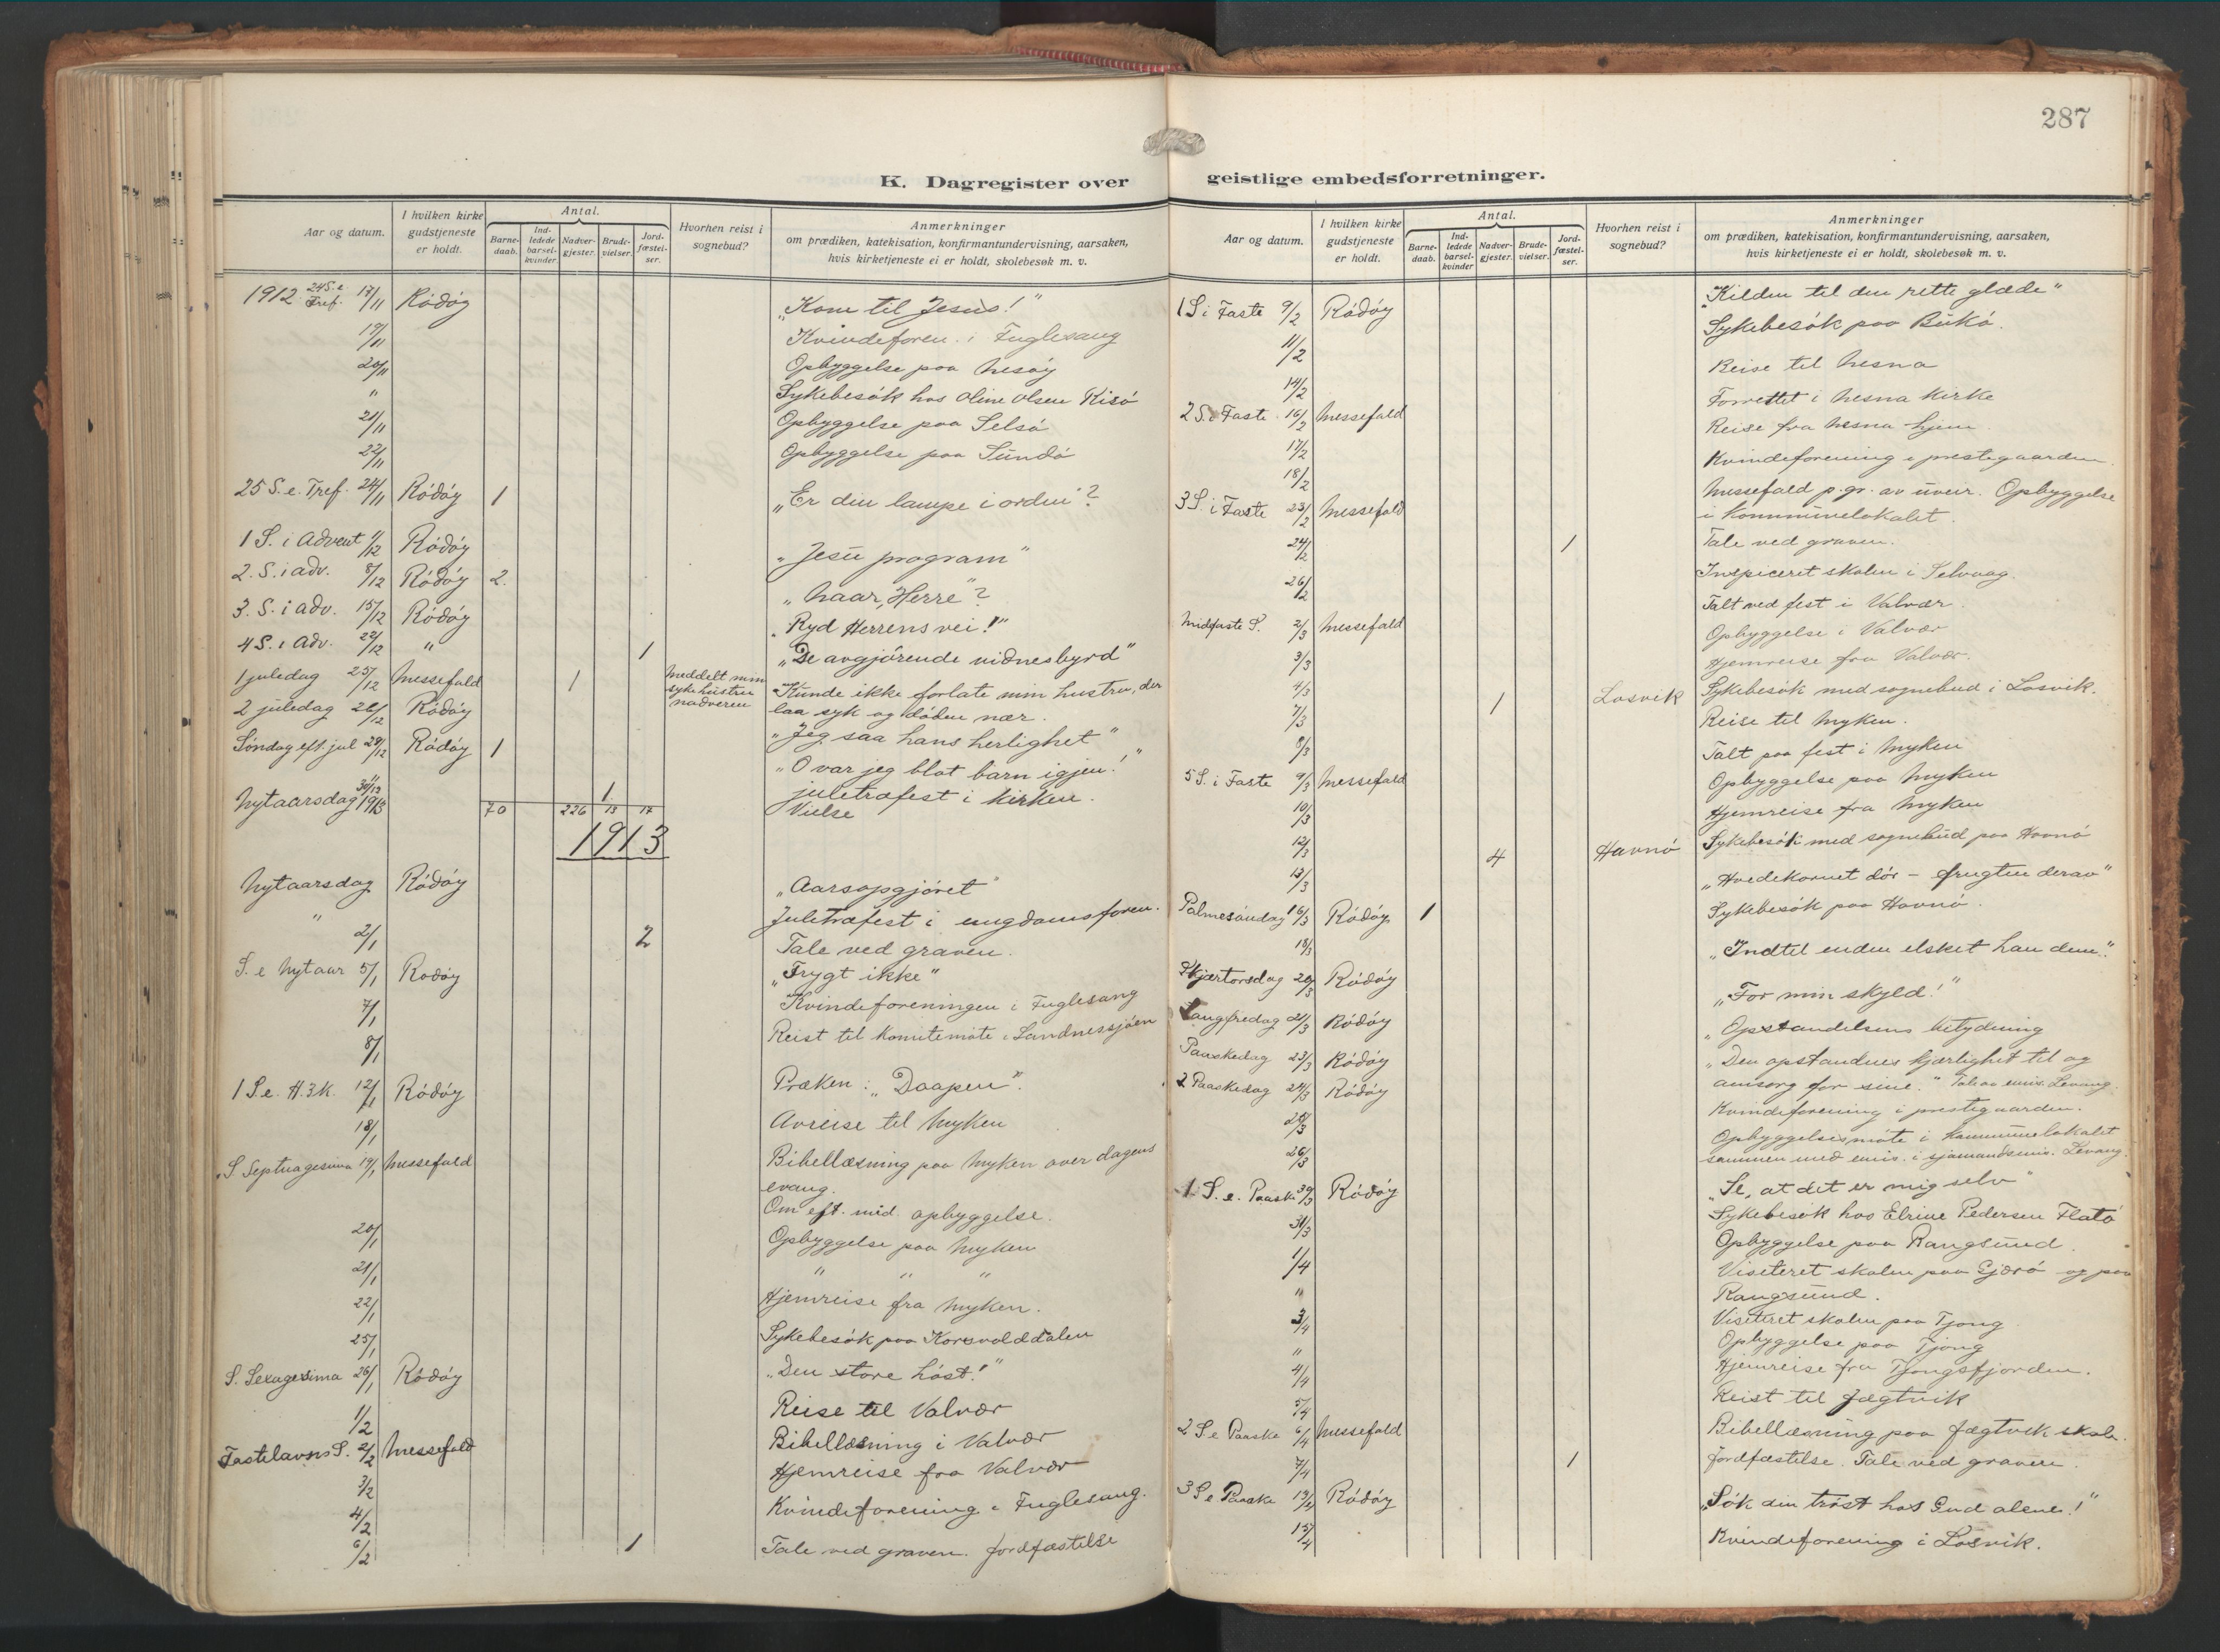 287
K. Dagregister over geistlige embedsforretninger.
Aar og datum. I hvilken kirke gudstjeneste er holdt. Antal. Barne-daab. Ind-ledede barsel-kvinder. Nadver-gjester. Brude-vielser. Jord-fæstel-ser. Hvorhen reist i sognebud? Anmerkninger om prædiken, katekisation, konfirmantundervisning, aarsaken, hvis kirketjeneste ei er holdt, skolebesøk m. v.
1912 24 S. e. Tref. 17/11 Rödöy "Kom til Jesus!"
19/11 Kvindeforen. i Fuglesang
20/11 Opbyggelse paa Nesöy
" Sykebesök hos Oline Olsen Kisö
21/11 Opbyggelse paa Selsö
22/11 Opbyggelse paa Sundö
25 S. e. Tref. 24/11 Rödöy 1 "Er din lampe i orden"?
1 S. i Advent 1/12 Rödöy "Jesu program"
2. S. i adv. 8/12 Rödöy 2. "Naar, Herre"?
3. S. i adv. 15/12 Rödöy "Ryd Herrens vei!"
4 S. i Adv. 22/12 " 1 "De avgjörende vidnesbyrd"
1 juledag 25/12 Messefald 1 Meddelt min syke hustru nadveren Kunde ikke forlate min hustru, der
laa syk og döden nær.
2 juledag 26/12 Rödöy "Jeg saa hans herlighet"
Söndag eft. jul 29/12 Rödöy 1 "O var jeg blot barn igjen!"
juletræfest i kirken.
31/12 1 Vielse
Nytaarsdag 1913 70 226 13 17
1913
Nytaarsdag Rödöy "Aarsopgjöret"
" Juletræfest i ungdomsforen.
2/1 2 Tale ved graven.
S. e Nytaar 5/1 Rödöy "Frygt ikke"
7/1 Kvindeforeningen i Fuglesang
8/1 Reist til komitemöte i Sandnessjöen
1 S. e. H.3.K. 12/1 Rödöy Præken: "Daapen".
18/1 Avreise til Myken
S. Septuagesima 19/1 Messefald Bibellæsning paa Myken over dagens
evang.
Om eft. mid. opbyggelse.
20/1 Opbyggelse paa Myken
21/1 " " "
22/1 Hjemreise fra Myken.
25/1 Sykebesök paa Korsvolddalen
S. Sexagesima 26/1 Rödöy "Den store höst!"
1/2 Reise til Valvær
Fastelavns S. 2/2 Messefald Bibellæsning i Valvær
3/2 Hjemreise fra Valvær
4/2 Kvindeforening i Fuglesang.
6/2 1 Tale ved graven. Jordfæstelse
Aar og datum. I hvilken kirke gudstjeneste er holdt. Antal. Barne-daab. Ind-ledede barsel-kvinder Nadver-gjester. Brude-vielser. Jord-fæstel-ser. Hvorhen reist i sognebud? Anmerkninger om prædiken, katekisation, konfirmantundervisning, aarsaken, hvis kirketjeneste ei er holdt, skolebesøk m. v.
1 S. i Faste 9/2 Rödöy "Kilden til den rette glæde"
11/2 Sykebesök paa Bukö.
14/2 Reise til Nesna
2 S. i Faste 16/2 Messefald Forrettet i Nesna kirke
17/2 Reise fra Nesna hjem
18/2 Kvindeforening i prestegaarden.
3 S. i Faste 23/2 Messefald Messefald p. gr. av uveir. Opbyggelse
i kommunelokalet.
24/2 1 Tale ved graven.
26/2 Inspiceret skolen i Selvaag.
Talt ved fest i Valvær.
Midfaste S. 2/3 Messefald Opbyggelse i Valvær
3/3 Hjemreise fra Valvær.
4/3 1 Losvik Sykebesök med sognebud i Losvik.
7/3 Reise til Myken.
8/3 Talt paa fest i Myken
5 S. i Faste 9/3 Messefald Opbyggelse paa Myken
10/3 Hjemreise fra Myken
12/3 4 Havnö Sykebesök med sognebud paa Havnö
13/3
Palmesöndag 16/3 Rödöy 1 "Hvedekornet dör - frugten derav"
18/3 Sykebesök paa Havnö.
Skjærtorsdag 20/3 Rödöy "Indtil enden elsket han dem".
Langfredag 21/3 Rödöy "For min skyld!"
Paaskedag 23/3 Rödöy "Opstandelsens betydning
2 Paaskedag 24/3 Rödöy "Den opstandnes kjærlighet til og
omsorg for sine." Tale av emis. Levang.
25/3 Kvindeforening i prestegaarden.
26/3 Opbyggelsesmöte i kommunelokalet
sammen med emis. i sjömandsmis. Levang.
1. S. e. Paaske 30/3 Rödöy "Se, at det er mig selv"
31/3 Sykebesök hos Elrine Pedersen Flatö
1/4 Opbyggelse paa Rangsund.
" Visiteret skolen paa Gjærö og paa
Rangsund.
3/4 Visiteret skolen paa Tjong
" Opbyggelse paa Tjong
4/4 Hjemreise fra Tjongsfjorden.
5/4 Reist til Jægtvik
2 S. e Paaske 6/4 Messefald Bibellæsning paa Jægtvik skole.
7/4 1 Jordfæstelse. Tale ved graven.
3 S. e Paaske 13/4 Rödöy "Sök din tröst hos Gud alene!"
15/4 Kvindeforening i Losvik.